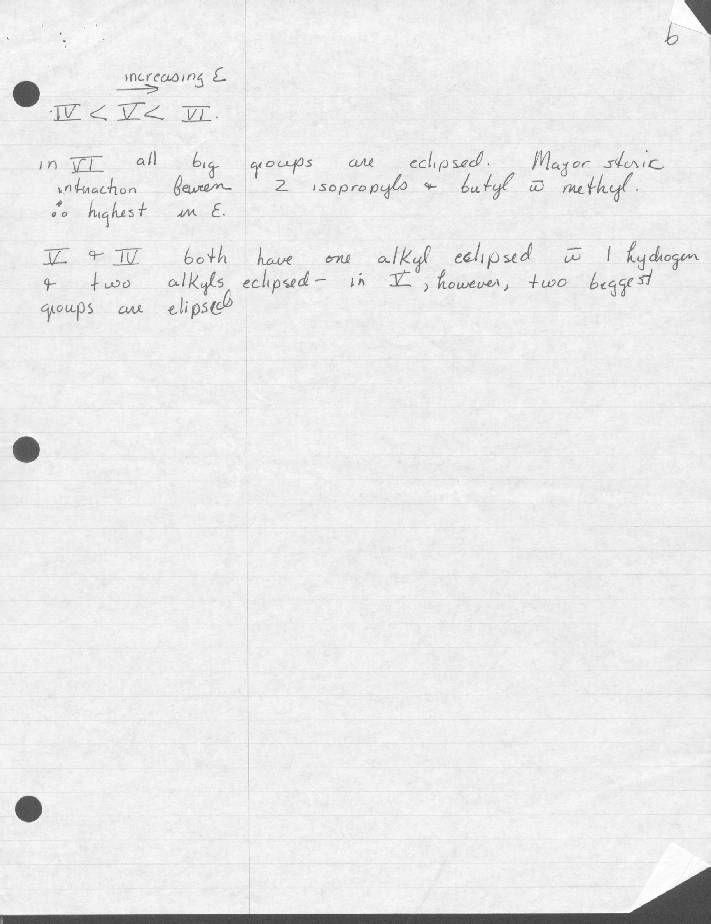 6
increasing E
IV < V < VI.
in VI all big groups are eclipsed. Mayor steric
intraction beween 2 isopropyls + butyl w̄ methyl.
∴ highest in E.
V + IV both have one alkyl eclipsed w̄ 1 hydrogen
+ two alkyls eclipsed - in V, however, two beggest
groups are elipsed